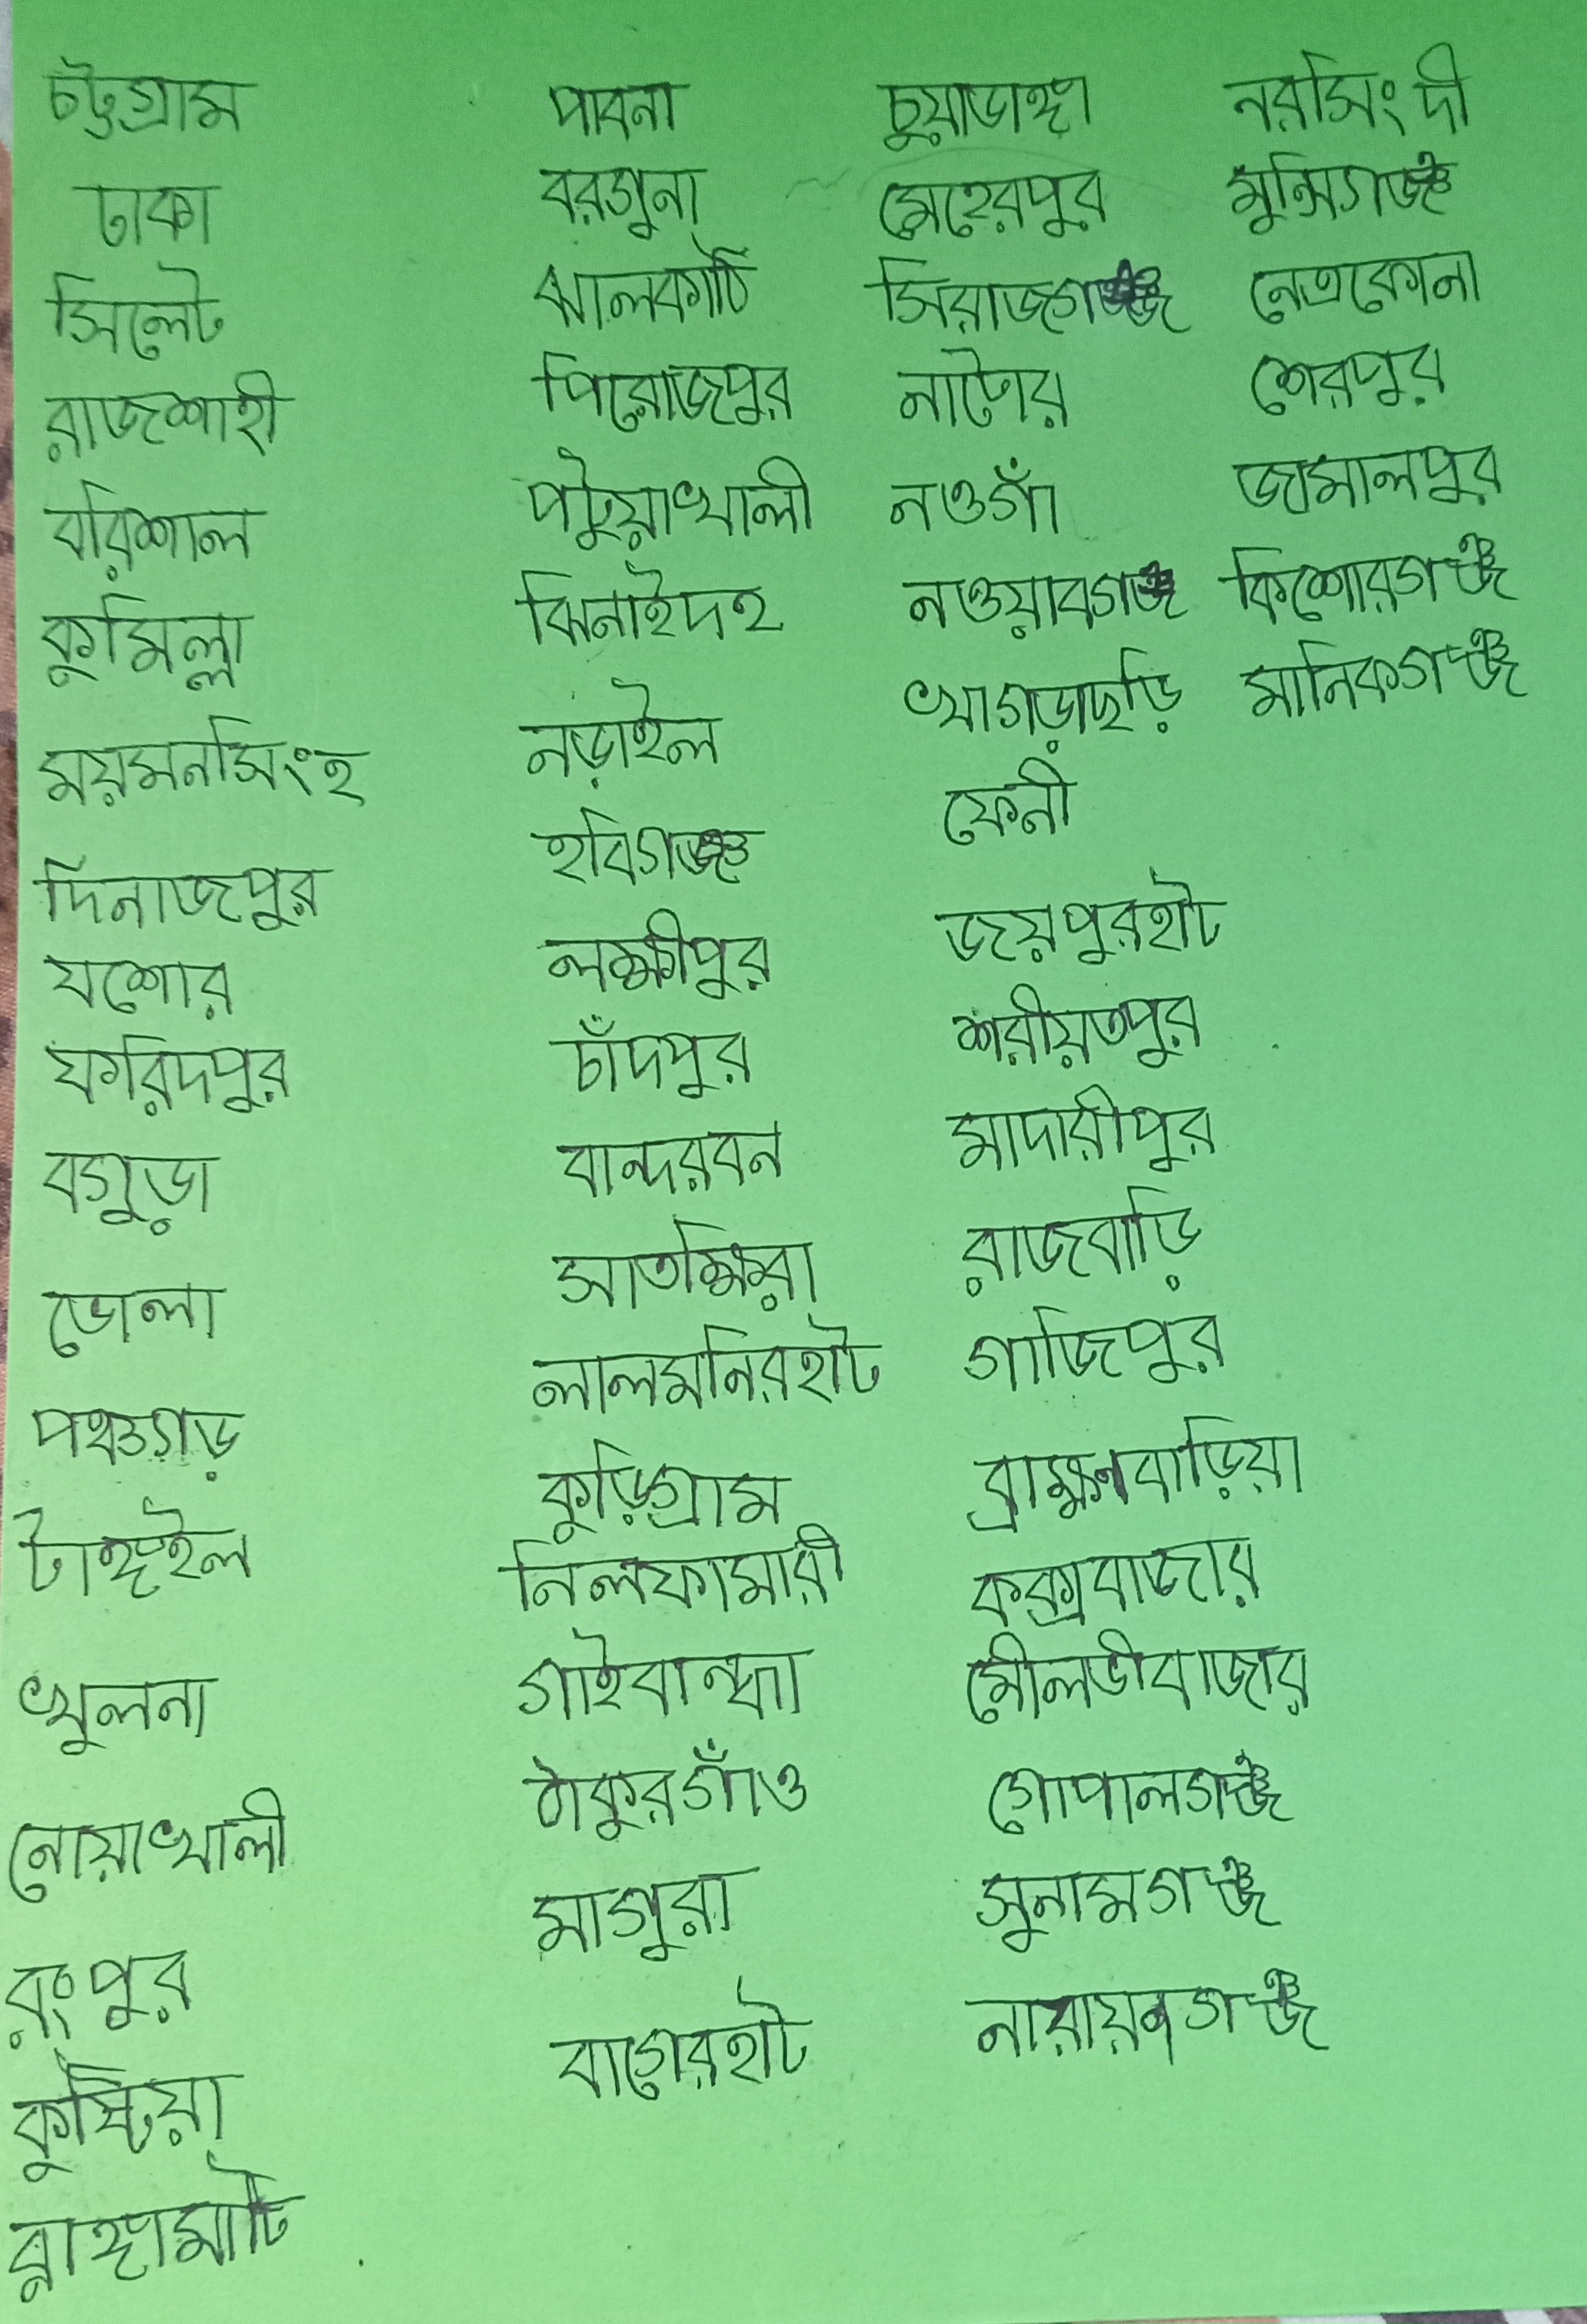 চট্টগ্রাম
ঢাকা
সিলেট
রাজশাহী
বরিশাল
কুমিল্লা
ময়মনসিংহ
দিনাজপুর
যশোর
ফরিদপুর
বগুড়া
ভোলা
পঞ্চগড়
টাঙ্গাইল
খুলনা
নোয়াখালী
রংপুর
কুষ্টিয়া
রাঙ্গামাটি
পাবনা
বরগুনা
ঝালকাঠি
পিরোজপুর
পটুয়াখালী
ঝিনাইদহ
নড়াইল
হবিগঞ্জ
লক্ষীপুর
চাঁদপুর
বান্দরবন
সাতক্ষিরা
লালমনিরহাট
কুড়িগ্রাম
নিলফামারী
গাইবান্ধা
ঠাকুরগাঁও
মাগুরা
বাগেরহাট
চুয়াডাঙ্গা
মেহেরপুর
সিরাজগঞ্জ
নাটোর
নওগাঁ
নওয়াবগঞ্জ
খাগড়াছড়ি
ফেনী
জয়পুরহাট
শরীয়তপুর
মাদারীপুর
রাজবাড়ি
গাজিপুর
ব্রাক্ষনবাড়িয়া
কক্সবাজার
মৌলভীবাজার
গোপালগঞ্জ
সুনামগঞ্জ
নারায়ণগঞ্জ
নরসিংদী
মুন্সিগঞ্জ
নেত্রকোনা
শেরপুর
জামালপুর
কিশোরগঞ্জ
মানিকগঞ্জ